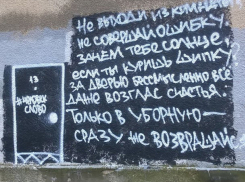 Не выходи из комнаты
не совершай ошибку.
зачем тебе солнце,
если ты куришь Шипку?
за дверью бессмысленно всё
даже возглас счастья.
Только в уборную —
сразу же возвращайс
13